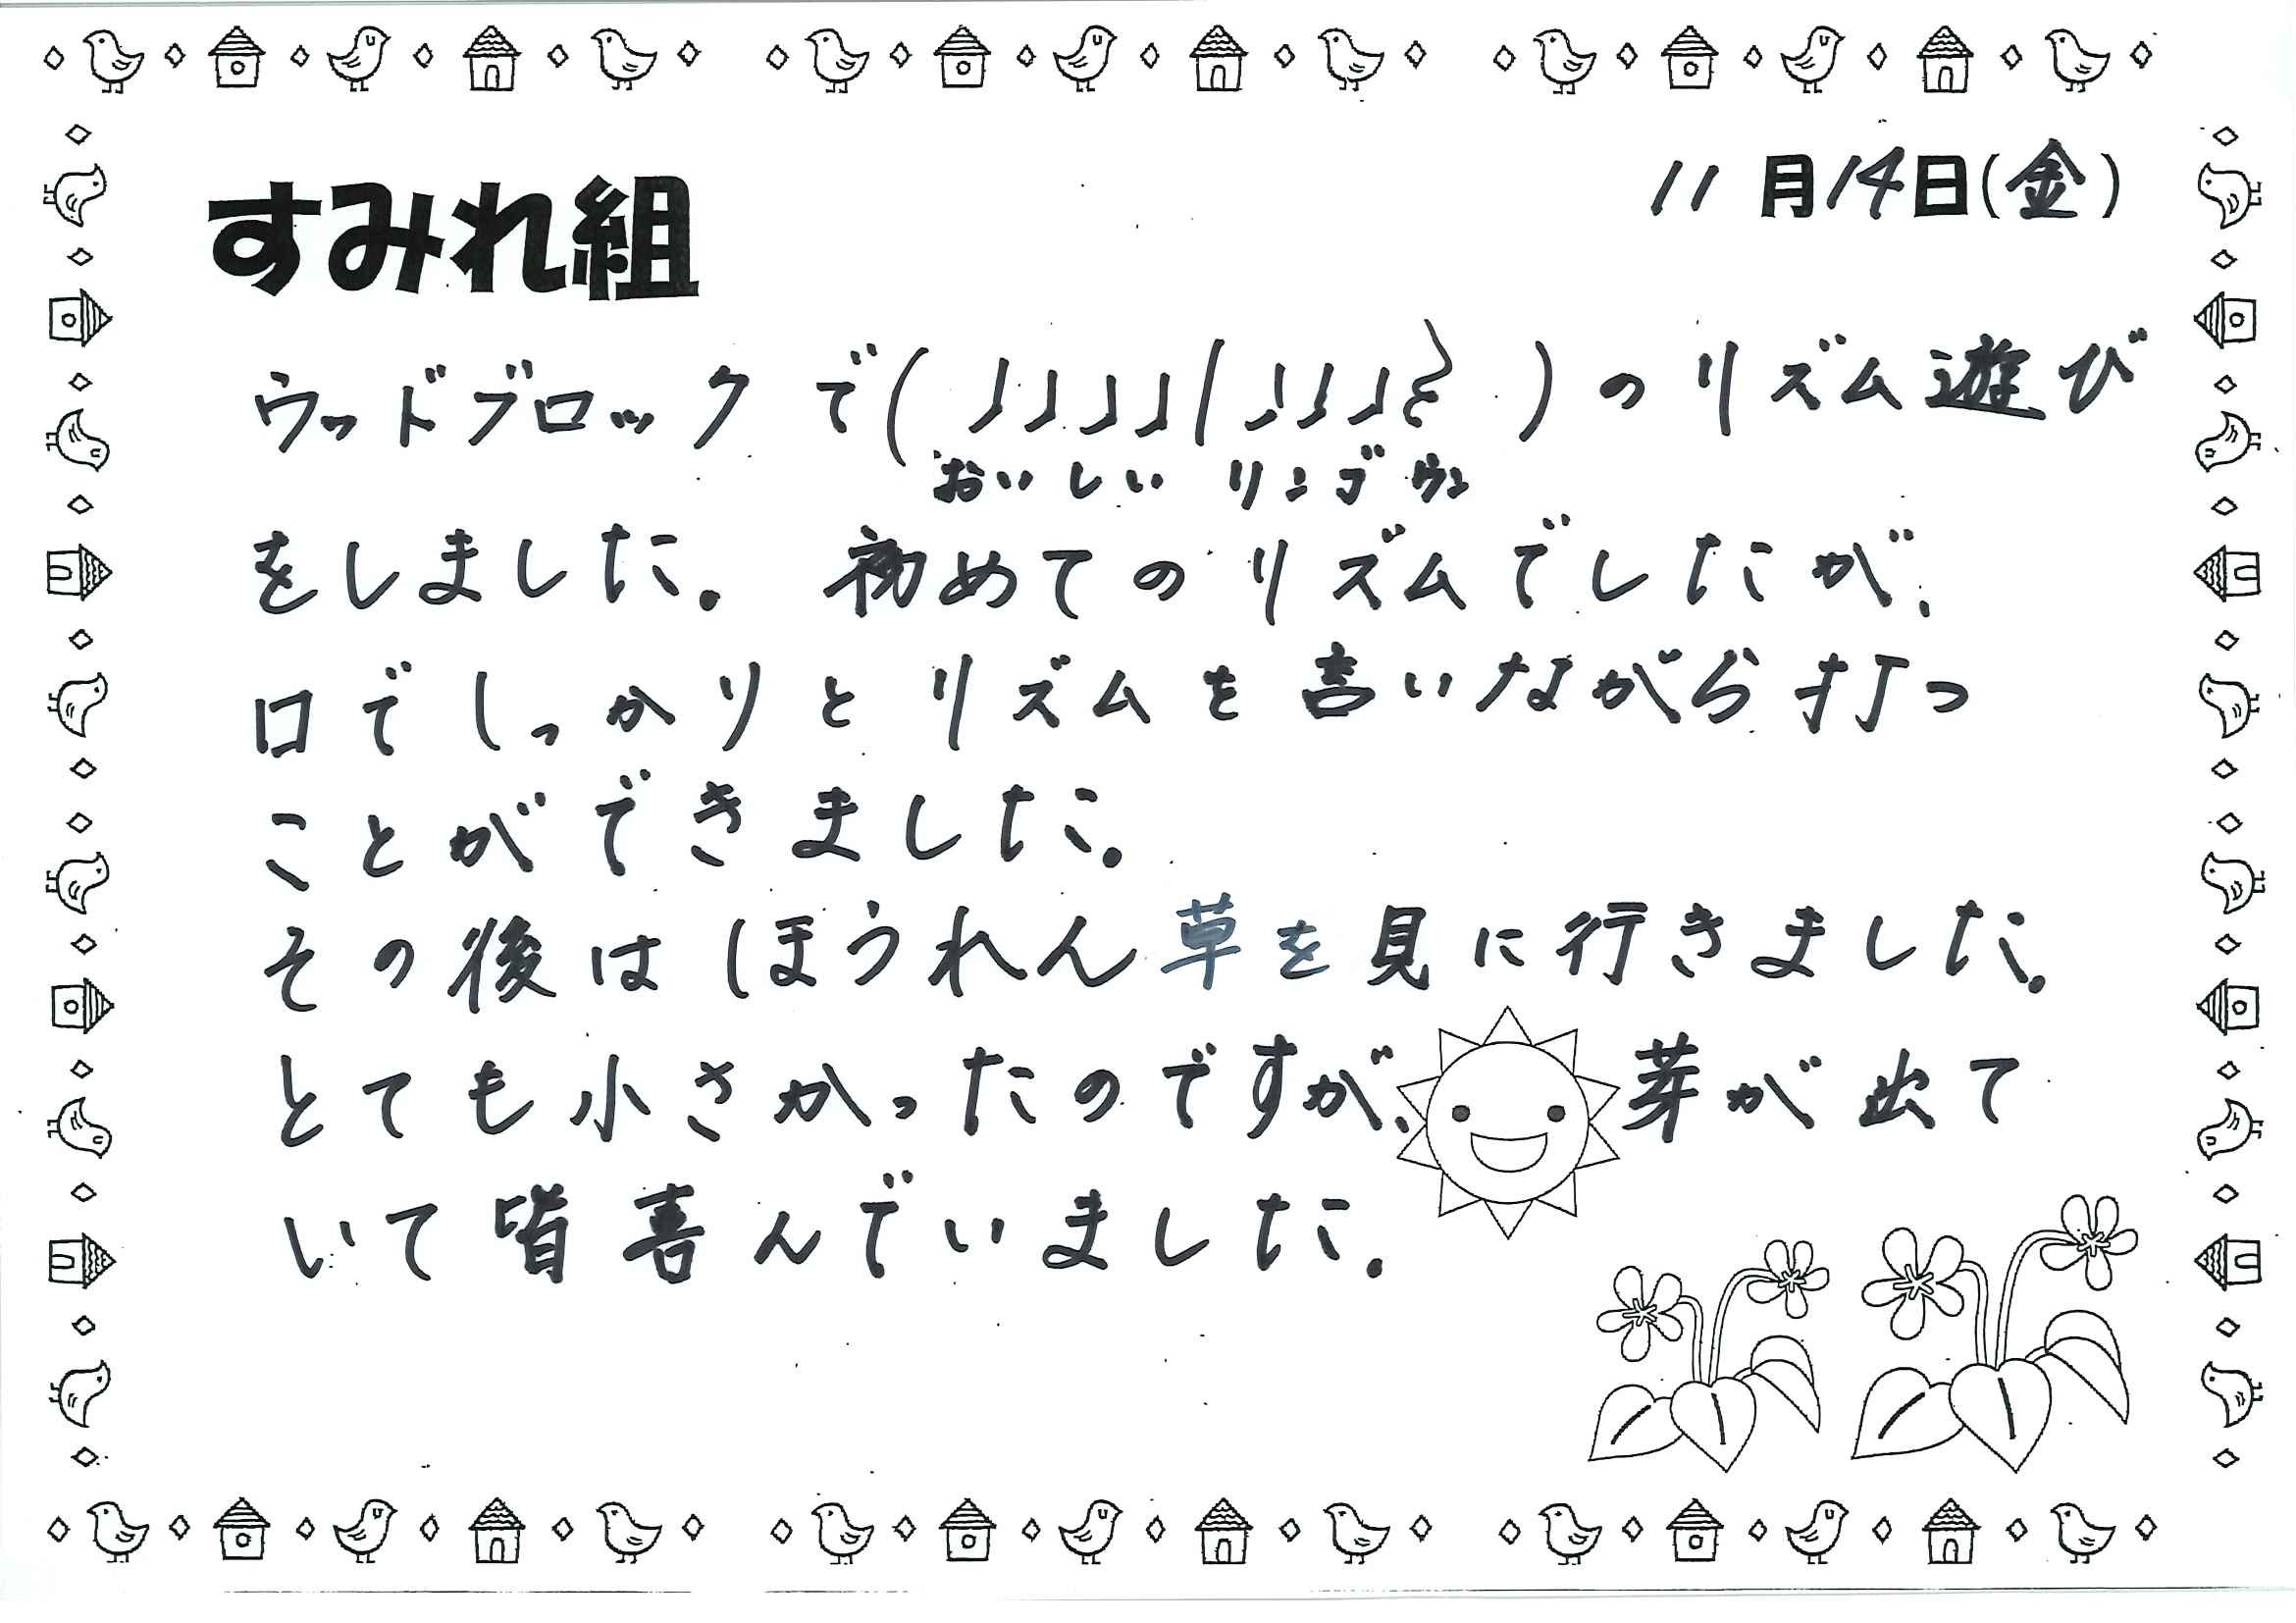 11月14日(金)
すみれ組
ウッドブロックで(♩♩♩♩|♩♩♩𝄽)のリズム遊び
おいしい リンゴ ウン
をしました。初めてのリズムでしたが、
口でしっかりとリズムを言いながら打つ
ことができました。
その後はほうれん草を見に行きました。
とても小さかったのですが、芽が出て
いて皆喜んでいました。